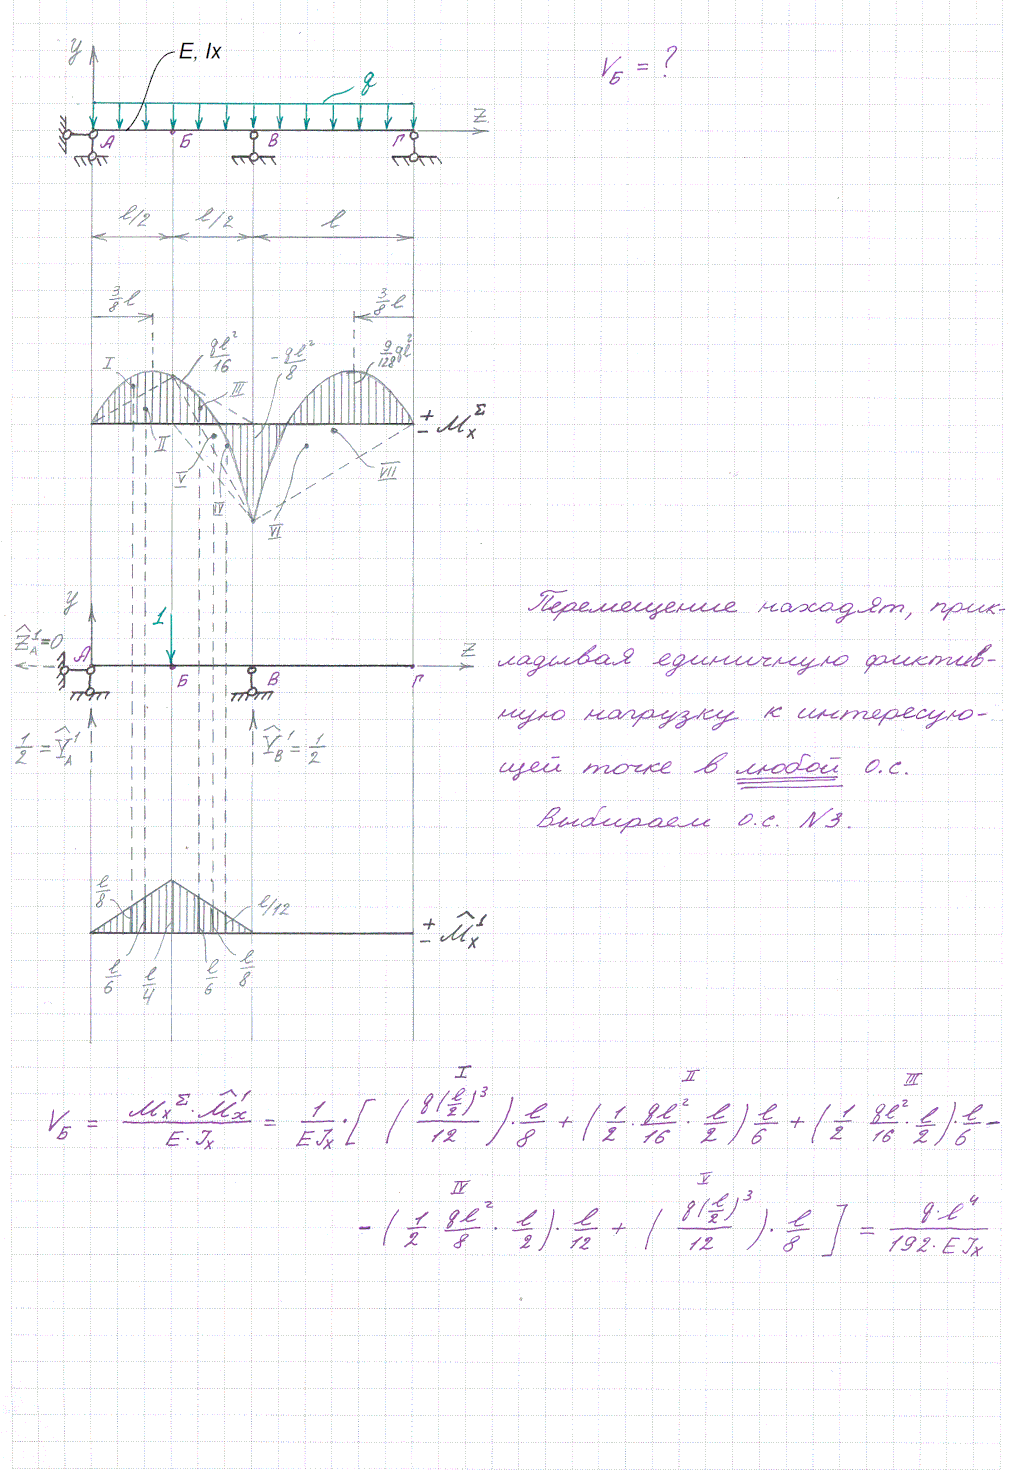 y
E, Ix
V_Б = ?
q
z
А Б В Г
l/2 l/2 l
3/8 l 3/8 l
I ql²/16 III -ql²/8 9/128 ql²
+ − M_x^Σ
II V IV VI VII
y
1
Ẑ_A^1=0 А z
Б В Г
1/2 = Ŷ_A^1 Ŷ_B^1 = 1/2
Перемещение находят, прик-
ладывая единичную фиктив-
ную нагрузку к интересую-
щей точке в любой о.с.
Выбираем о.с. N3.
l/8 l/12
+ − M̂_x^1
l/6 l/4 l/6 l/8
I II III
V_Б = (M_x^Σ · M̂_x^1)/(E · J_x) = 1/(EJ_x) · [ (q(l/2)^3/12) · l/8 + (1/2 · ql²/16 · l/2) l/6 + (1/2 ql²/16 · l/2) · l/6 −
IV V
− (1/2 ql²/8 · l/2) · l/12 + (q(l/2)^3/12) · l/8 ] = (q · l^4)/(192 · EJ_x)